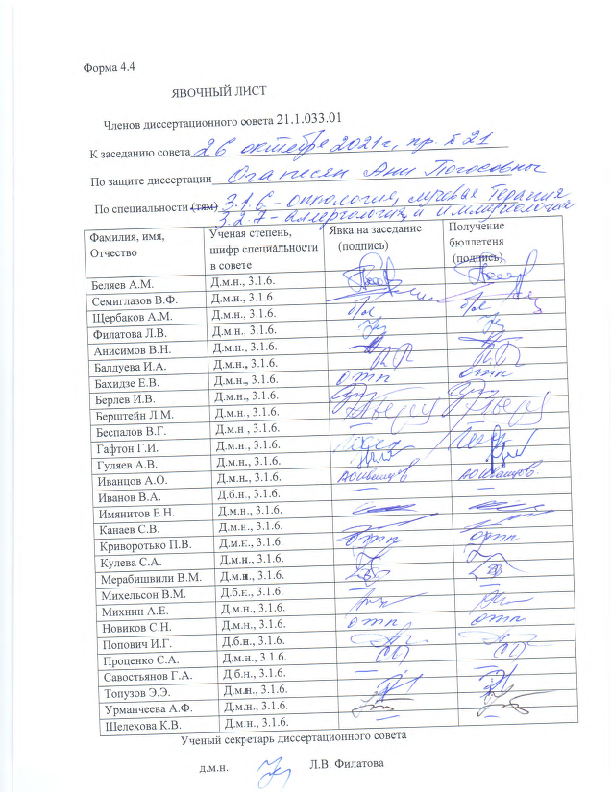 Форма 4.4
ЯВОЧНЫЙ ЛИСТ
Членов диссертационного совета 21.1.033.01
К заседанию совета 26 октября 2021г, пр. № 21
По защите диссертации Оганесян Ани Погосовны
По специальности (тям) 3.1.6 - онкология, лучевая терапия
3.2.7 - аллергология и иммунология
Фамилия, имя, Отчество
Ученая степень, шифр специальности в совете
Явка на заседание (подпись)
Получение бюллетеня (подпись)
Беляев А.М. Д.м.н., 3.1.6.
Семиглазов В.Ф. Д.м.н., 3.1.6
Щербаков А.М. Д.м.н., 3.1.6.
Филатова Л.В. Д.м.н. 3.1.6.
Анисимов В.Н. Д.м.н., 3.1.6.
Балдуева И.А. Д.м.н., 3.1.6.
Бахидзе Е.В. Д.м.н., 3.1.6. отп отп
Берлев И.В. Д.м.н., 3.1.6.
Берштейн Л.М. Д.м.н., 3.1.6.
Беспалов В.Г. Д.м.н., 3.1.6.
Гафтон Г.И. Д.м.н., 3.1.6.
Гуляев А.В. Д.м.н., 3.1.6.
Иванцов А.О. Д.м.н., 3.1.6. АОИванцов АОИванцов.
Иванов В.А. Д.б.н., 3.1.6.
Имянитов Е.Н. Д.м.н., 3.1.6.
Канаев С.В. Д.м.н., 3.1.6.
Криворотько П.В. Д.м.н., 3.1.6 отп отп
Кулева С.А. Д.м.н., 3.1.6
Мерабишвили В.М. Д.м.н., 3.1.6.
Михельсон В.М. Д.б.н., 3.1.6
Михнин А.Е. Д.м.н., 3.1.6.
Новиков С.Н. Д.м.н., 3.1.6. отп отп
Попович И.Г. Д.б.н., 3.1.6.
Проценко С.А. Д.м.н., 3.1.6.
Савостьянов Г.А. Д.б.н., 3.1.6.
Топузов Э.Э. Д.м.н., 3.1.6.
Урманчеева А.Ф. Д.м.н., 3.1.6.
Шелехова К.В. Д.м.н., 3.1.6.
Ученый секретарь диссертационного совета
д.м.н. Л.В. Филатова